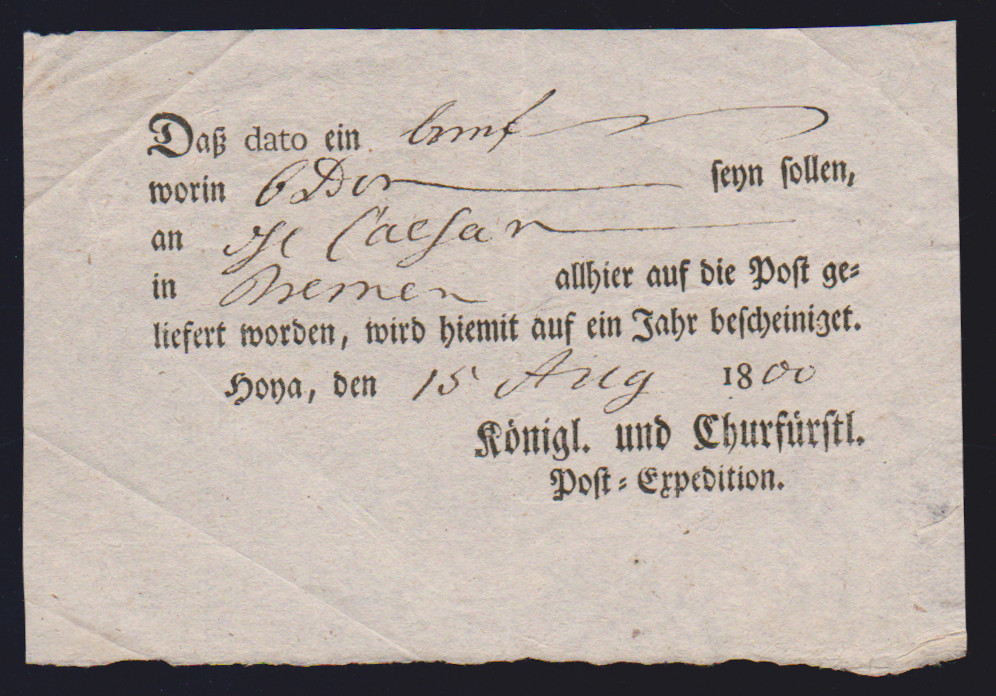 Daß dato ein brief
worin 6 seyn sollen,
an Caesar
in Bremen allhier auf die Post ge=
liefert worden, wird hiemit auf ein Jahr bescheiniget.
Hoya, den 15 Aug 1800
Königl. und Churfürstl.
Post=Expedition.